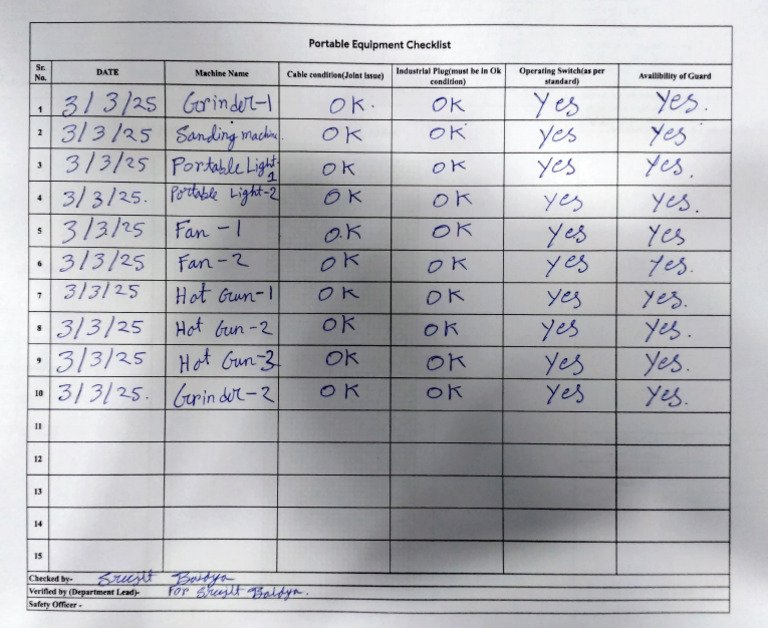 Portable Equipment Checklist
Sr. No. DATE Machine Name Cable condition(Joint issue) Industrial Plug(must be in Ok condition) Operating Switch(as per standard) Availibility of Guard
1 3/3/25 Grinder-1 OK. OK Yes Yes.
2 3/3/25 Sanding machine. OK OK yes Yes
3 3/3/25 Portable Light-1 OK OK Yes Yes.
4 3/3/25. Portable Light-2 OK OK yes Yes.
5 3/3/25 Fan-1 O.K OK Yes Yes
6 3/3/25 Fan-2 OK OK yes Yes.
7 3/3/25 Hot Gun-1 OK OK Yes Yes.
8 3/3/25 Hot Gun-2 OK OK Yes Yes.
9 3/3/25 Hot Gun-3 OK OK Yes Yes.
10 3/3/25. Grinder-2 OK OK Yes Yes.
11
12
13
14
15
Checked by-
Verified by (Department Lead)- For
Safety Officer -